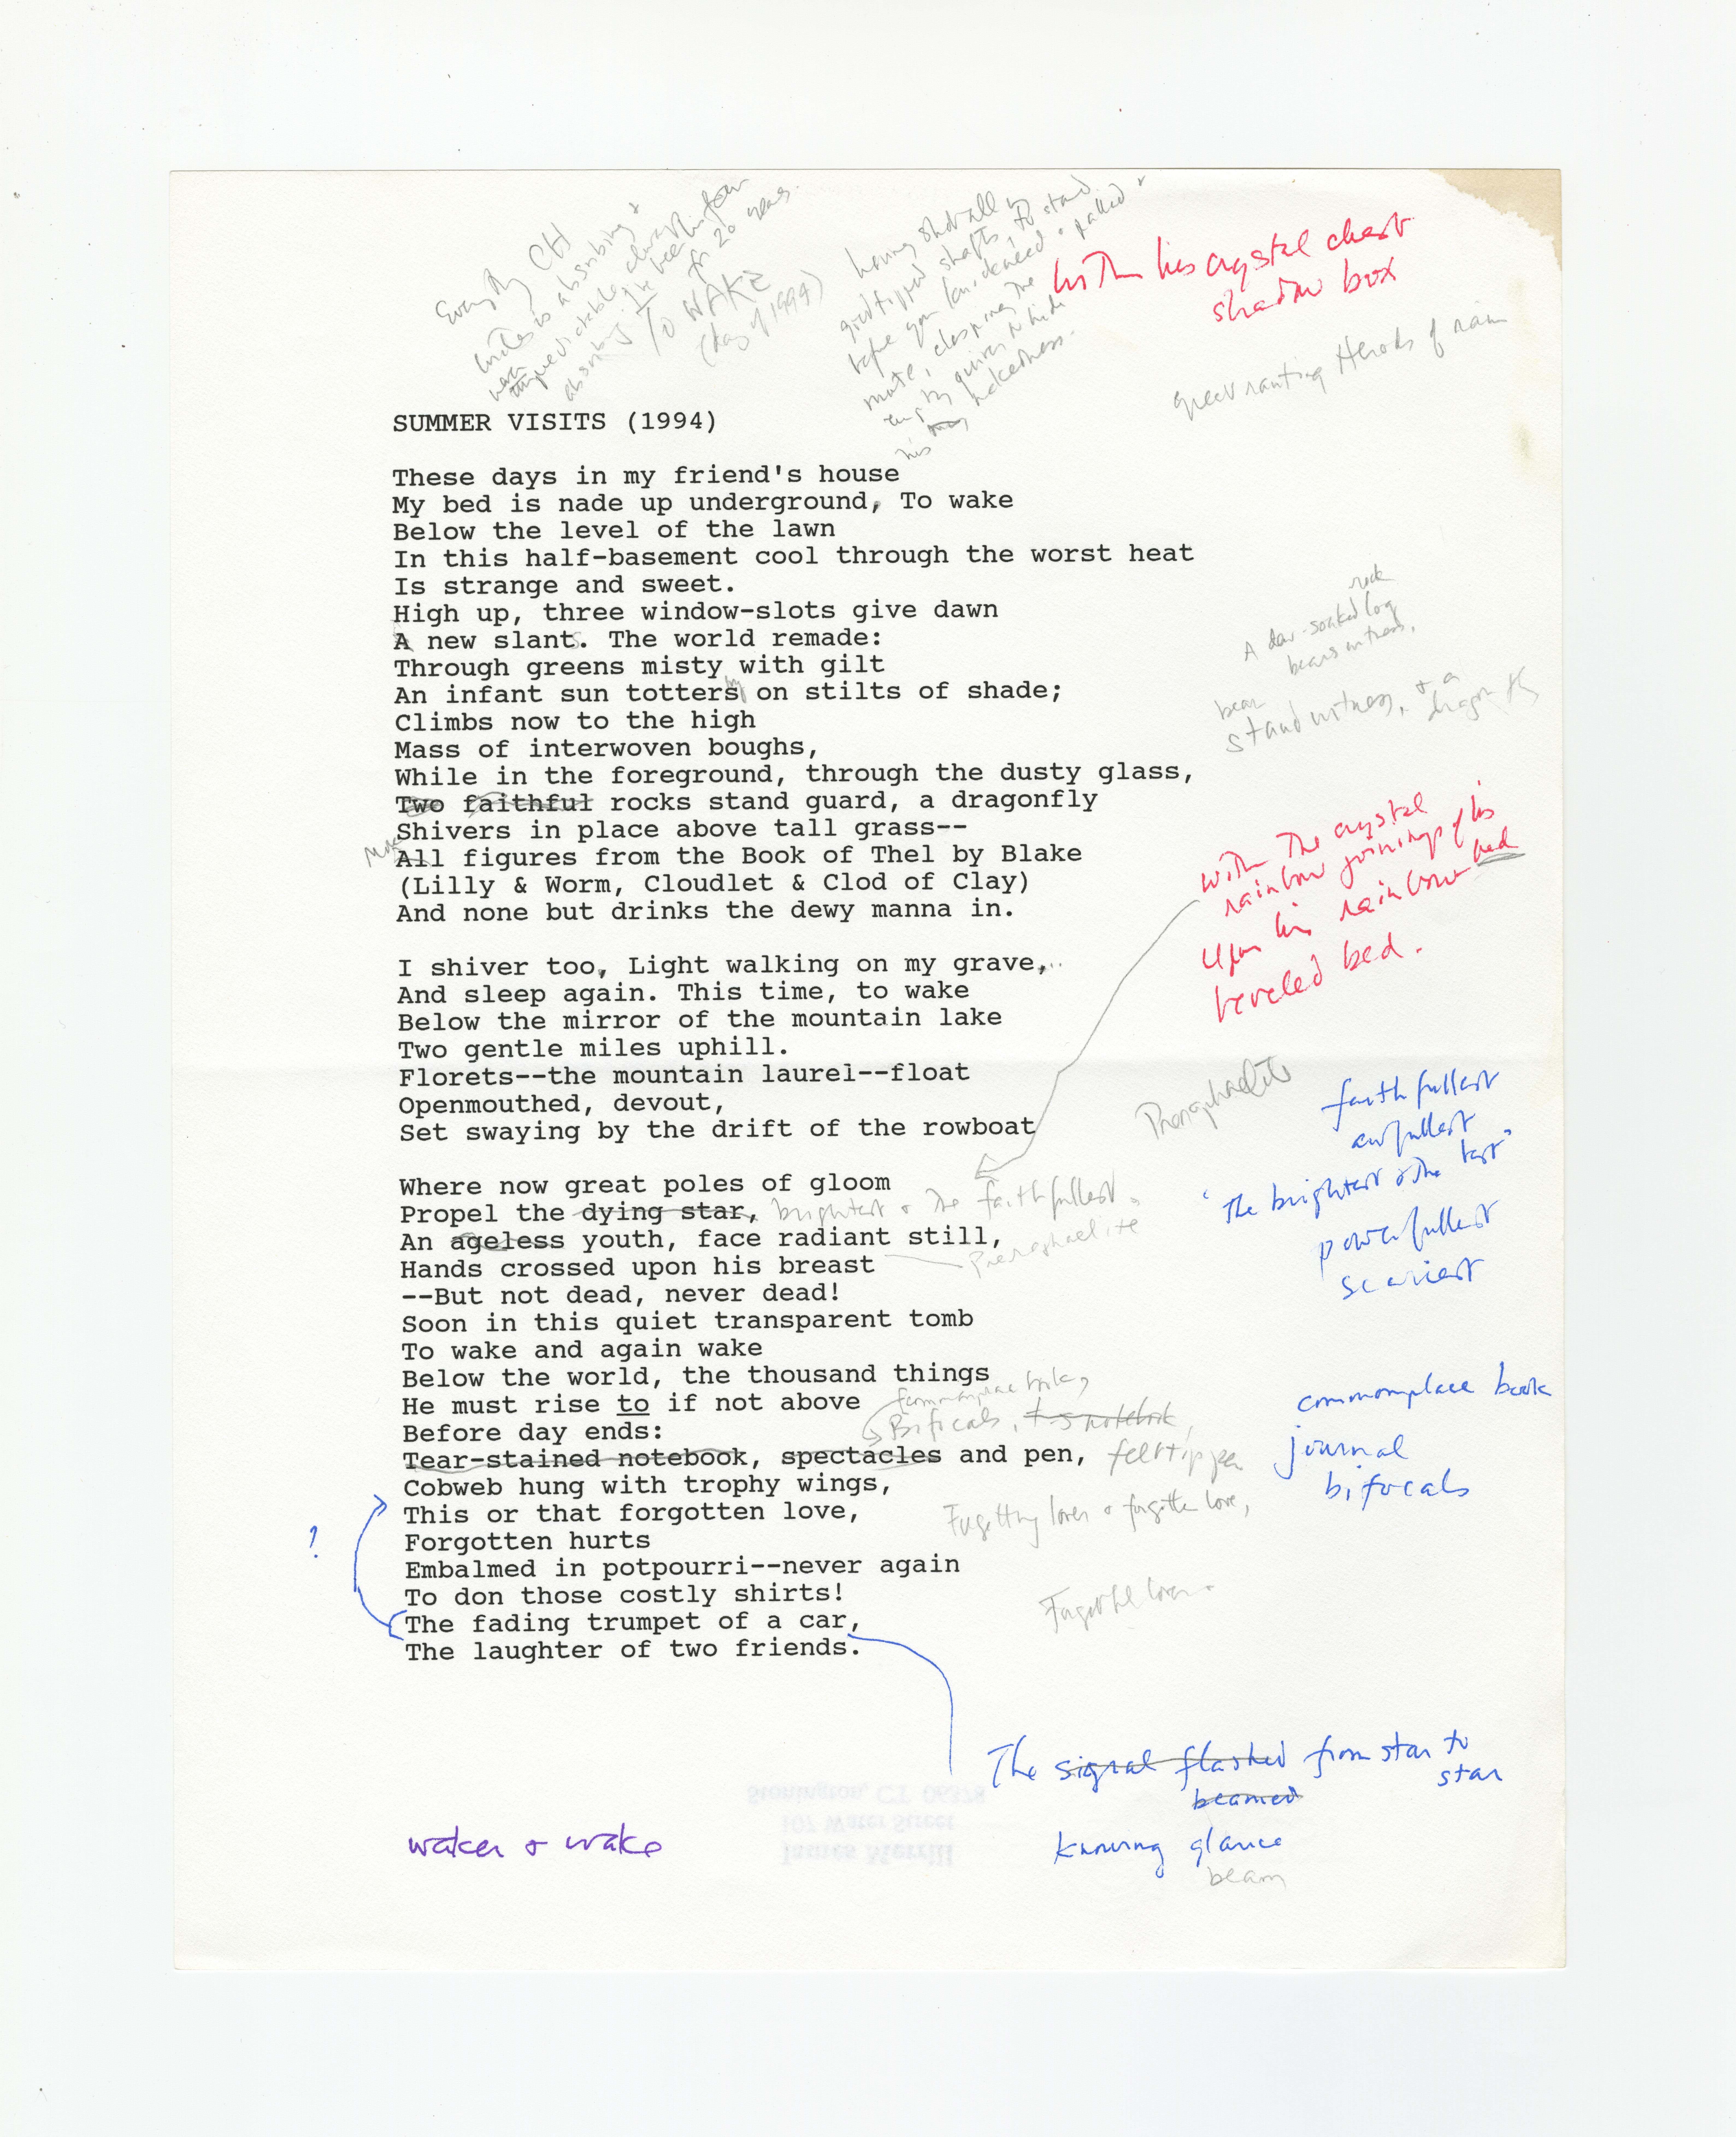 Every CH
writes is absorbing &
absorbing. I've been
for 20 years.
TO WAKE
(May 1994)
having shot all
gold tipped shafts, to stand
before you
mute, clasping the
empty quiver to hide
his nakedness.
With his crystal chest
shadow box
great ranting Herods of rain
SUMMER VISITS (1994)
These days in my friend's house
My bed is nade up underground, To wake
Below the level of the lawn
In this half-basement cool through the worst heat
Is strange and sweet.
High up, three window-slots give dawn
A new slants. The world remade:
Through greens misty with gilt
An infant sun totters by on stilts of shade;
Climbs now to the high
Mass of interwoven boughs,
While in the foreground, through the dusty glass,
Two faithful rocks stand guard, a dragonfly
Shivers in place above tall grass--
All figures from the Book of Thel by Blake
(Lilly & Worm, Cloudlet & Clod of Clay)
And none but drinks the dewy manna in.
rock
A dew-soaked log
bears witness.
bear
stand witness, & a
dragonfly
with the crystal
rainbow joinings of his
bed
upon his rainbow
beveled bed.
I shiver too, Light walking on my grave,..
And sleep again. This time, to wake
Below the mirror of the mountain lake
Two gentle miles uphill.
Florets--the mountain laurel--float
Openmouthed, devout,
Set swaying by the drift of the rowboat
Preraphaelite
faithfullest
awfullest
"the brightest & the best"
powerfullest
scariest
Where now great poles of gloom
Propel the dying star, brightest & the faithfullest.
An ageless youth, face radiant still,
Preraphaelite
Hands crossed upon his breast
--But not dead, never dead!
Soon in this quiet transparent tomb
To wake and again wake
Below the world, the thousand things
He must rise to if not above
commonplace book,
Before day ends:
Bifocals, t-s notebook,
Tear-stained notebook, spectacles and pen, felt tip pen
Cobweb hung with trophy wings,
This or that forgotten love,
Forgetting lover & forgotten love,
Forgotten hurts
Embalmed in potpourri--never again
To don those costly shirts!
The fading trumpet of a car,
The laughter of two friends.
?
commonplace book
journal
bifocals
The signal flashed from star to
star
beamed
knowing glance
beam
waken & wake
Stonington, CT 06378
107 Water Street
James Merrill